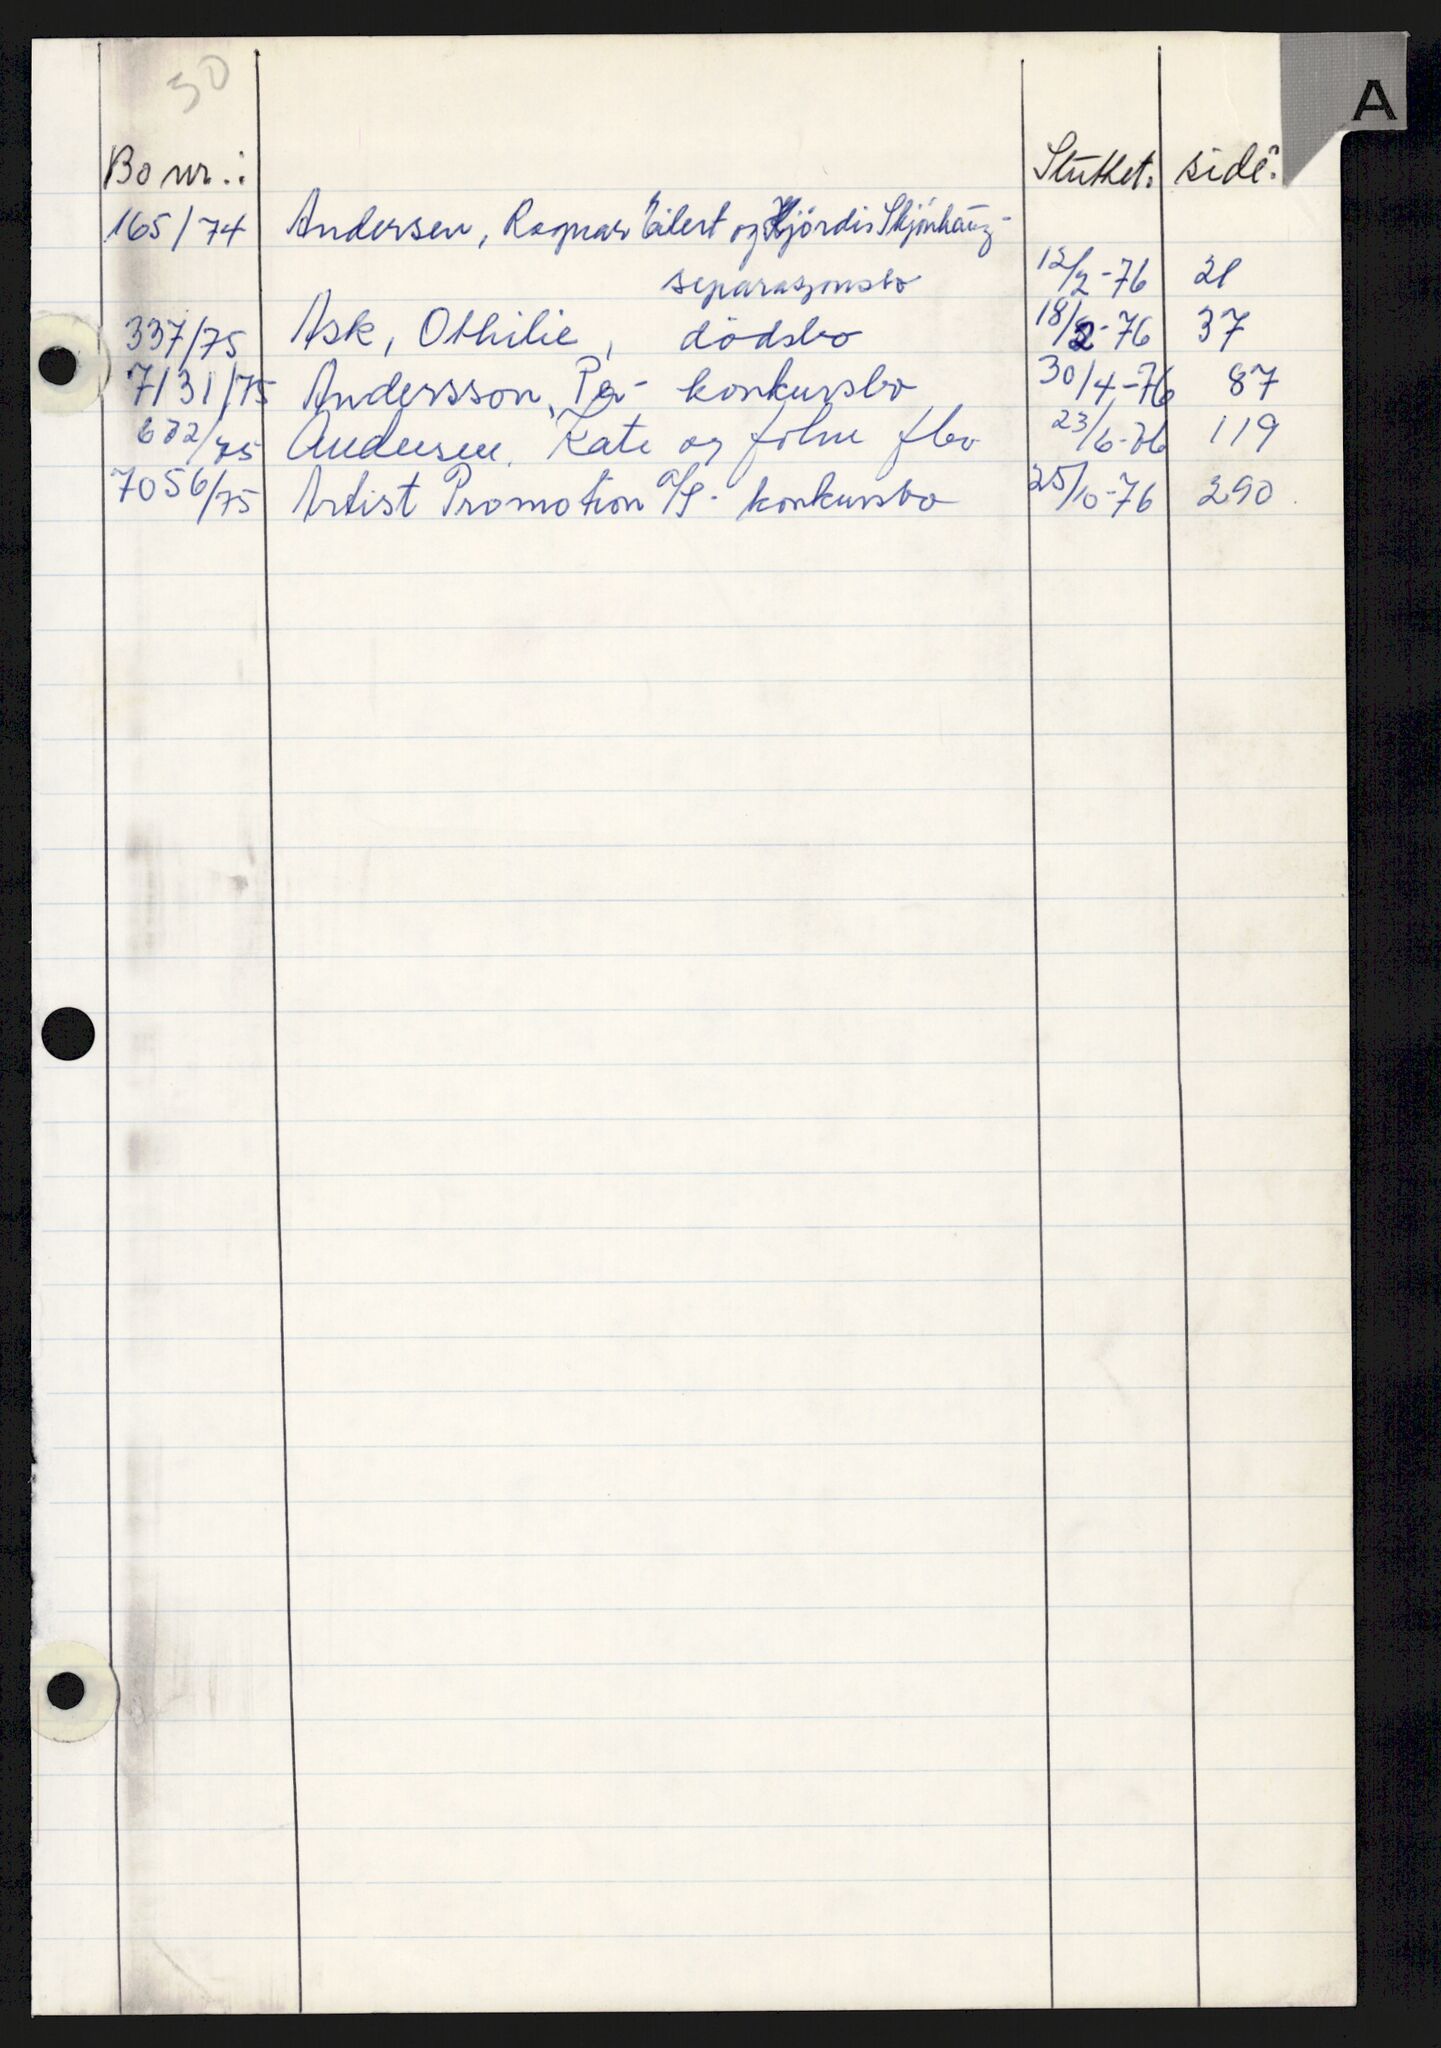 30
A
Bo nr.: Sluttet: side:
165/74 Andersen, Ragnar Eilert og Hjördis Skjönhaug-
separasjonsbo 12/2-76 21
337/75 Ask, Othilie, dödsbo 18/2-76 37
7131/75 Andersson, Per- konkursbo 30/4-76 87
672/75 Andersen, Kate og John fbo 23/6-76 119
7056/75 Artist Promotion A/S- konkursbo 25/10-76 290